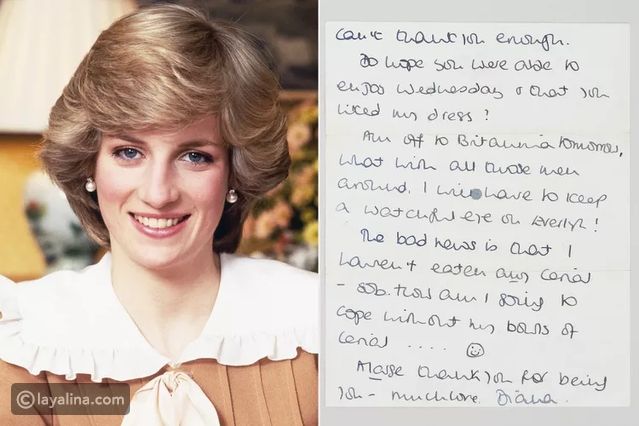 can't thank you enough.
Do hope you were able to
enjoy Wednesday & that you
liked my dress?
Am off to Britannia tomorrow,
what with all those men
around, I will have to keep
a watchful eye on Evelyn!
The bad news is that I
haven't eaten any cereal
- sob. How am I going to
cope without my bowls of
cereal ....
Masse thank you for being
you - much love, Diana.
©layalina.com